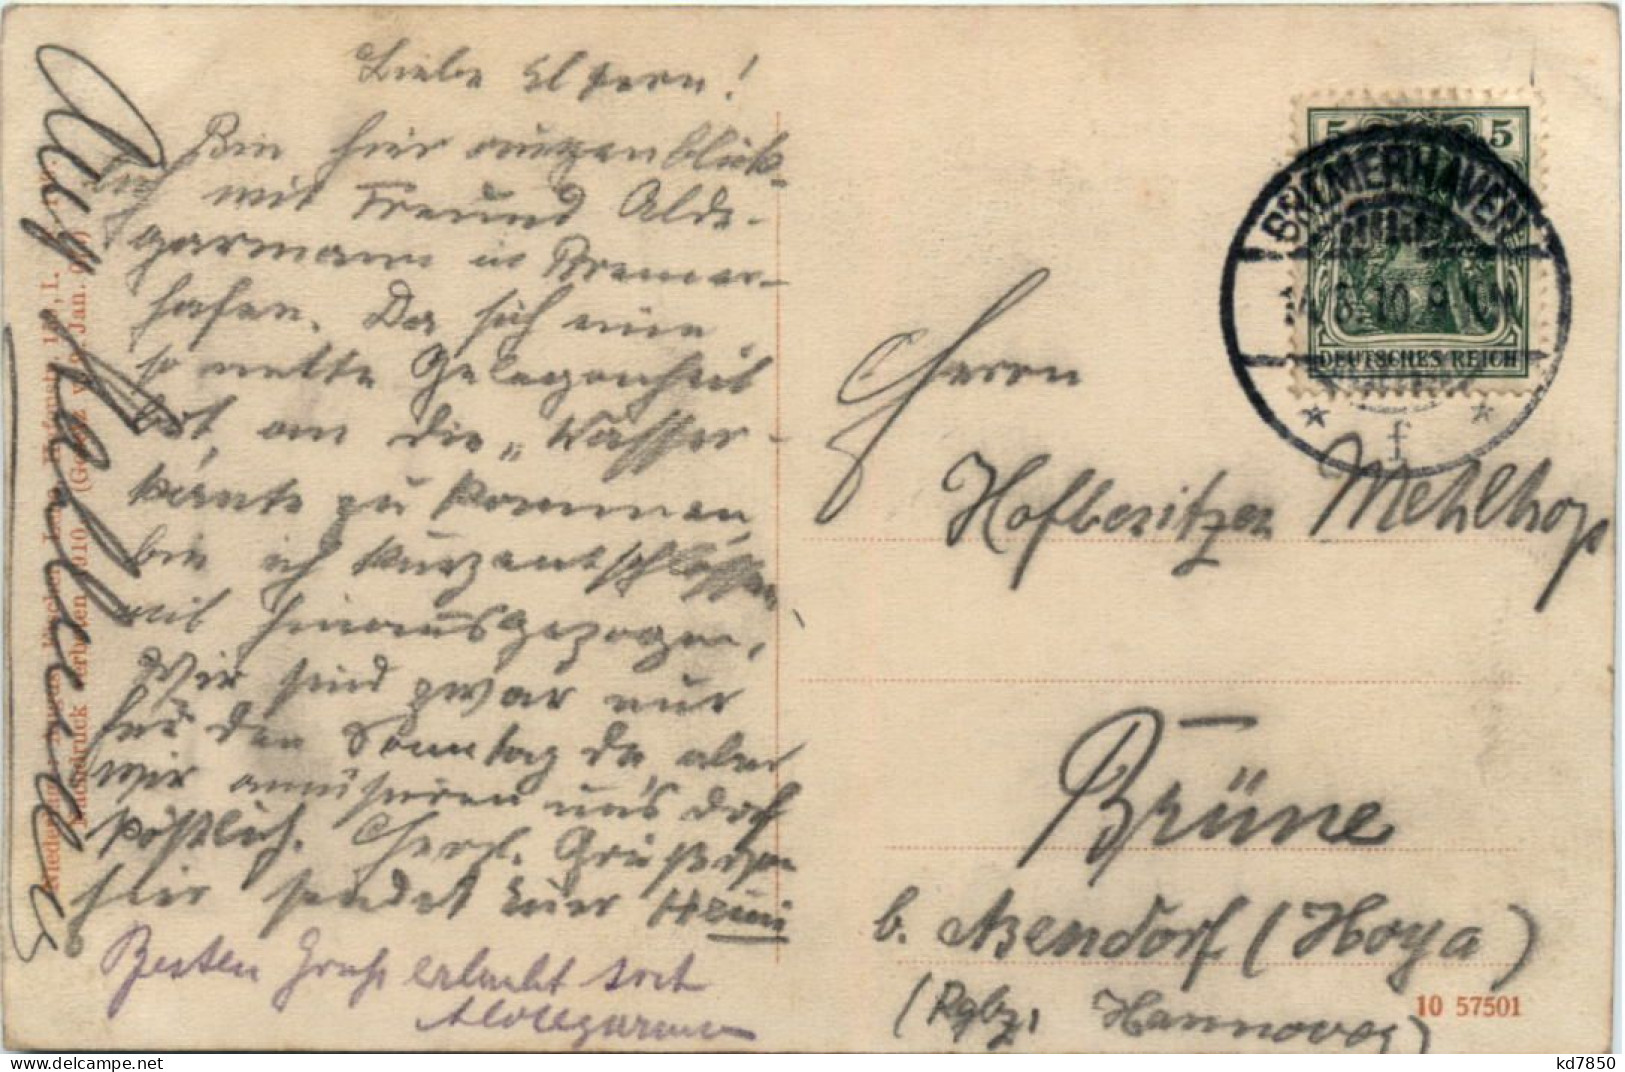 Liebe Eltern!
Bin hier augenblick-
lich mit Freund Alde-
garmann in Bremer-
hafen. Da sich eine
so nette Gelegenheit
bot, an die „Wasser-
kante zu kommen
bin ich kurzentschlossen
mit hinausgezogen,
Wir sind zwar nur
für den Sonntag da, aber
wir amüsieren uns doch
köstlich. Herzl. Grüße von
hier sendet Euer Heini
Besten Gruß erlaubt sich
Aldegarmann
Aug.
BREMERHAVEN
5 5
DEUTSCHES REICH
f
Herrn
Hofbesitzer Mehlhop
Brüne
b. Asendorf (Hoya)
(Rgbz. Hannover)
10 57501
kd7850